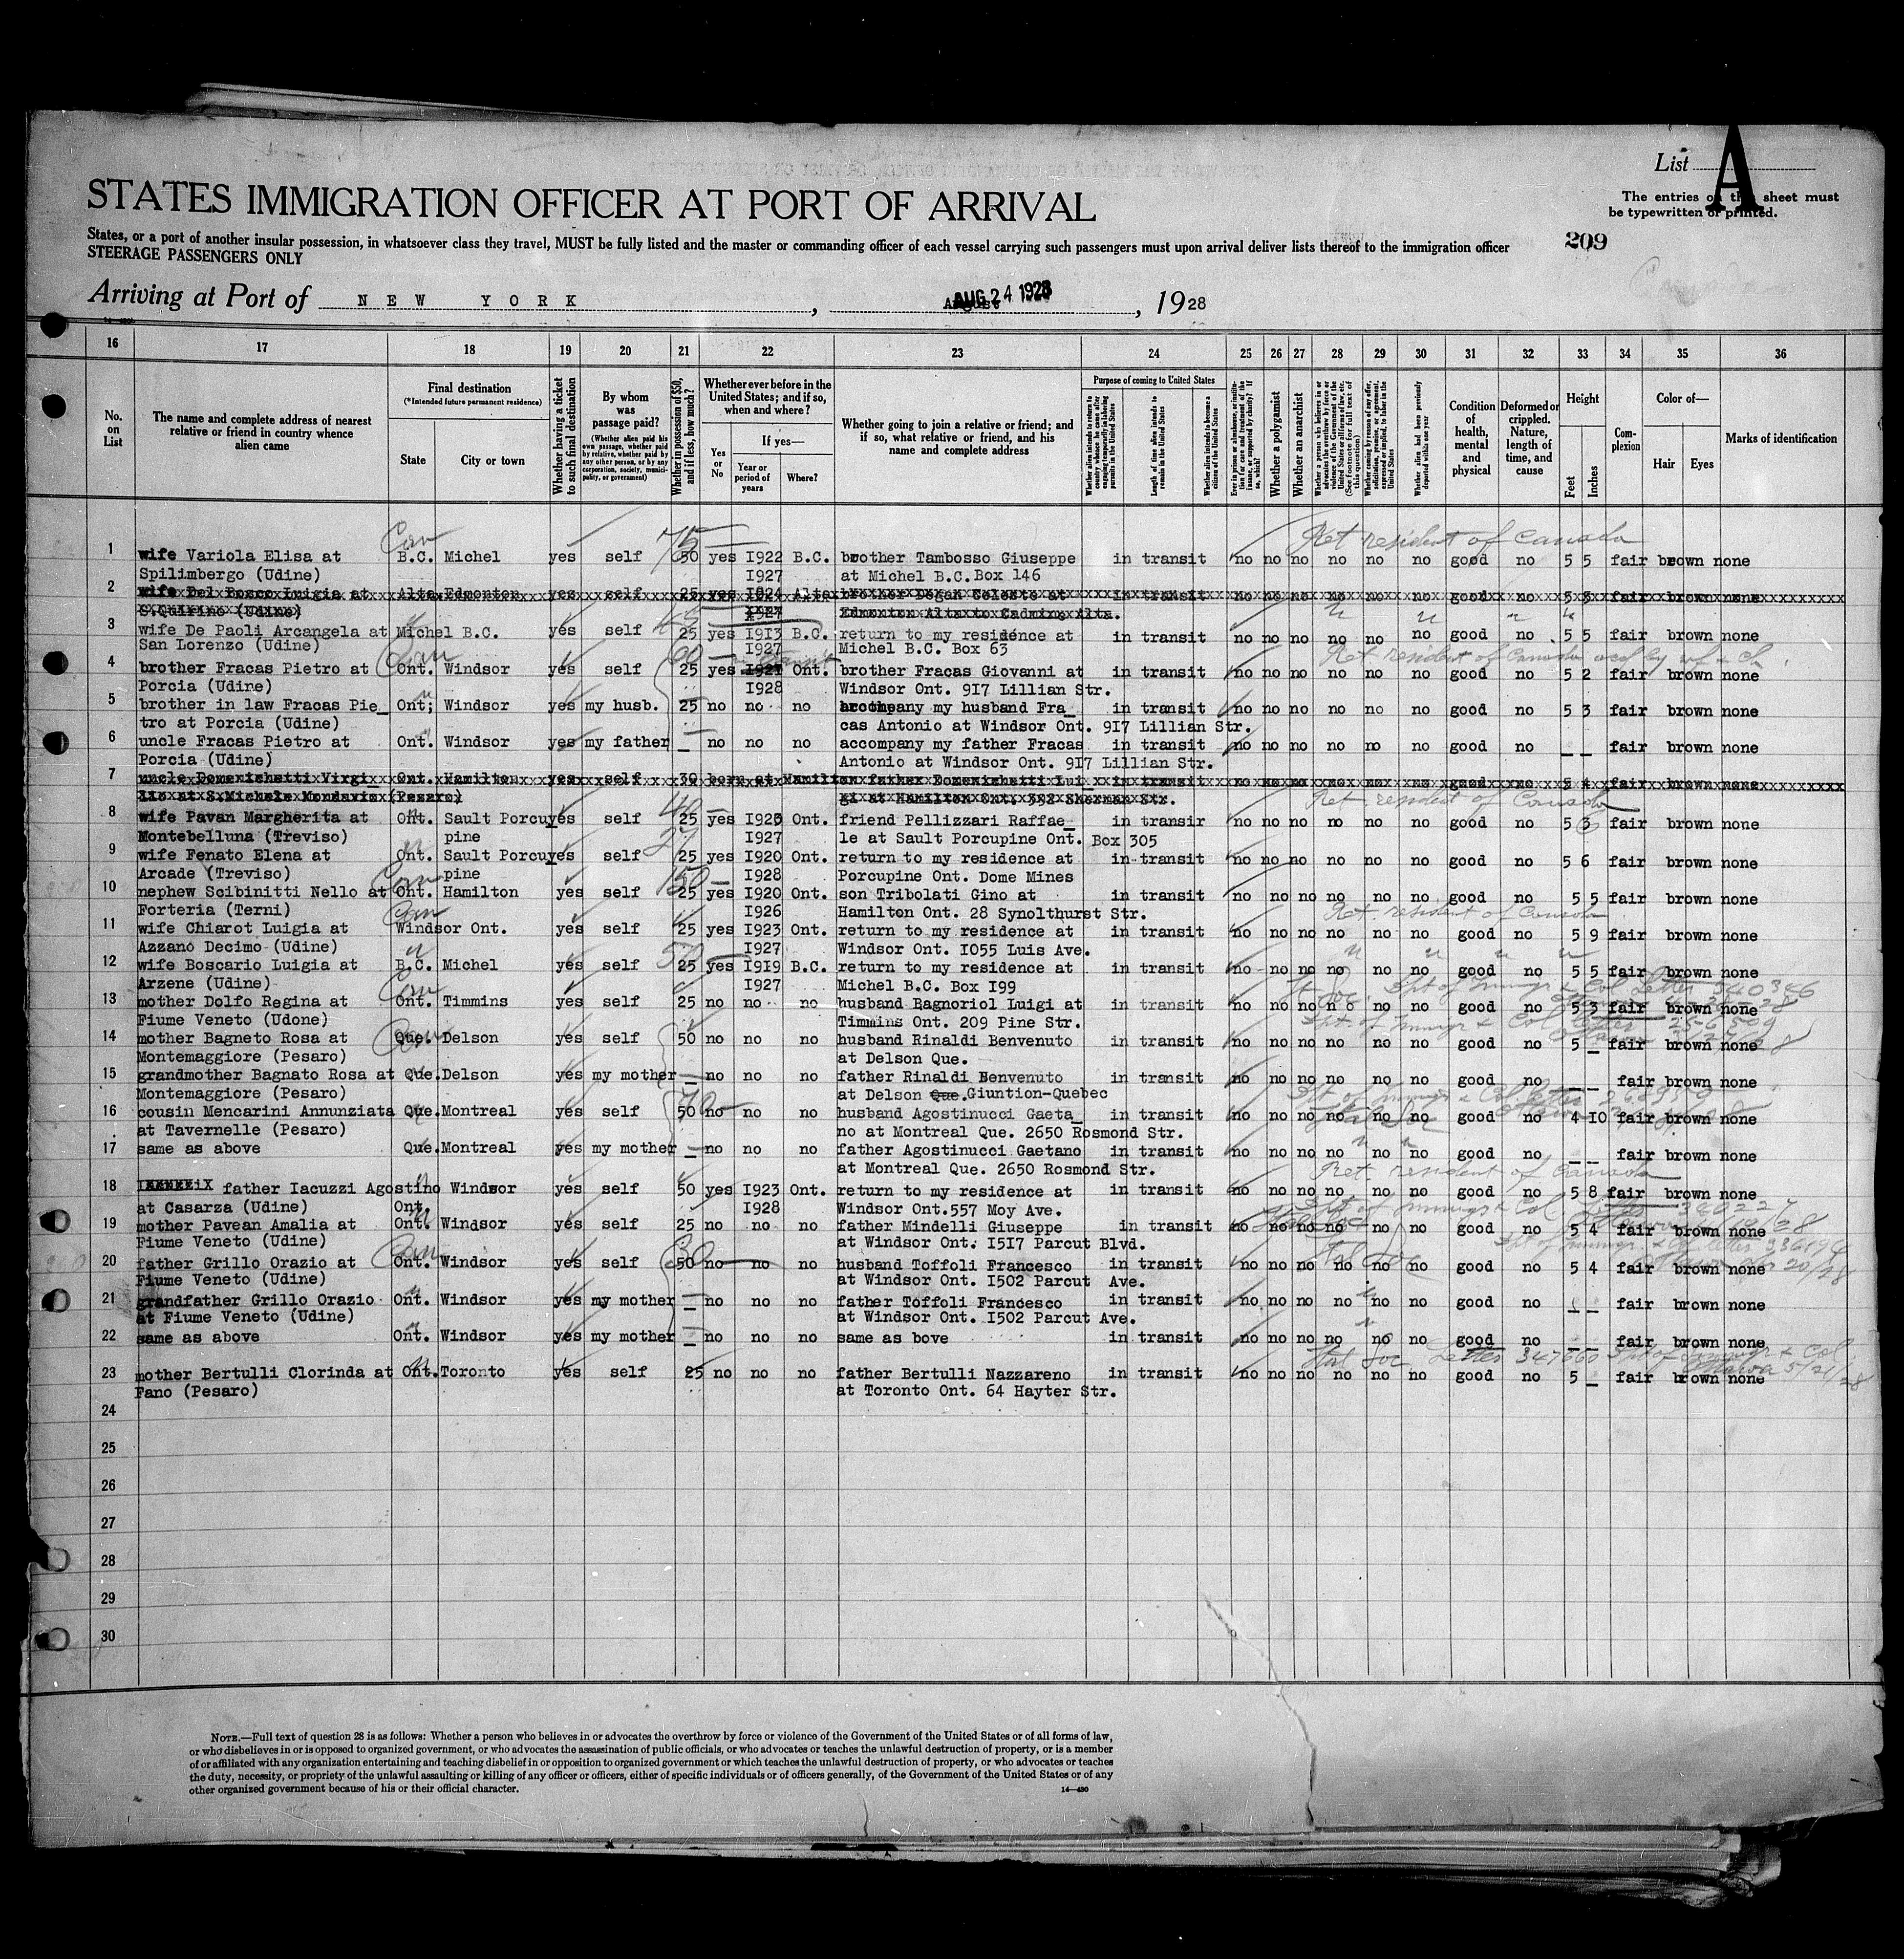 List A
The entries on this sheet must
be typewritten or printed.
STATES IMMIGRATION OFFICER AT PORT OF ARRIVAL
209
States, or a port of another insular possession, in whatsoever class they travel, MUST be fully listed and the master or commanding officer of each vessel carrying such passengers must upon arrival deliver lists thereof to the immigration officer
STEERAGE PASSENGERS ONLY
Arriving at Port of NEW YORK, AUG 24 1928, 1928
16 17 18 19 20 21 22 23 24 25 26 27 28 29 30 31 32 33 34 35 36
No. on List
The name and complete address of nearest relative or friend in country whence alien came
Final destination (*Intended future permanent residence)
State
City or town
Whether having a ticket to such final destination
By whom was passage paid?
(Whether alien paid his own passage, whether paid by relative, whether paid by any other person, or by any corporation, society, municipality, or government)
Whether in possession of $50, and if less, how much?
Whether ever before in the United States; and if so, when and where?
Yes or No
If yes—
Year or period of years
Where?
Whether going to join a relative or friend; and if so, what relative or friend, and his name and complete address
Purpose of coming to United States
Whether alien intends to return to country whence he came after engaging temporarily in laboring pursuits in the United States
Length of time alien intends to remain in the United States
Whether alien intends to become a citizen of the United States
Whether a polygamist
Whether an anarchist
Condition of health, mental and physical
Deformed or crippled. Nature, length of time, and cause
Height
Feet
Inches
Complexion
Color of—
Hair
Eyes
Marks of identification
Can 75 Ret resident of Canada
1 wife Variola Elisa at B.C. Michel yes self 50 yes I922 B.C. brother Tambosso Giuseppe in transit no no no no no no good no 5 5 fair brown none
Spilimbergo (Udine) I927 at Michel B.C. Box 146
2 wife Del Bosco Luigia at Alta Edmonton yes self 25 yes I924 Alta brother Degan Celeste at in transit no no no no no no good no 5 8 fair brown none
S.Quirino (Udine) I927 Edmonton Alta to Cadmine Alta.
3 wife De Paoli Arcangela at Michel B.C. yes self 25 yes I9I3 B.C. return to my residence at in transit no no no no no no good no 5 5 fair brown none
San Lorenzo (Udine) I927 Michel B.C. Box 63
Can 60 Ret resident of Canada
4 brother Fracas Pietro at Ont. Windsor yes self 25 yes I927 Ont. brother Fracas Giovanni at in transit no no no no no no good no 5 2 fair brown none
Porcia (Udine) I928 Windsor Ont. 9I7 Lillian Str.
5 brother in law Fracas Pie_ Ont; Windsor yes my husb. 25 no no no accompany my husband Fra_ in transit no no no no no no good no 5 3 fair brown none
tro at Porcia (Udine) cas Antonio at Windsor Ont. 9I7 Lillian Str.
6 uncle Fracas Pietro at Ont. Windsor yes my father _ no no no accompany my father Fracas in transit no no no no no no good no _ _ fair brown none
Porcia (Udine) Antonio at Windsor Ont. 9I7 Lillian Str.
7 uncle Domenichetti Virgi_ Ont. Hamilton yes self 30 born at Hamilton father Domenichetti Lui_ in transit no no no no no no good no 5 4 fair brown none
lio at S.Michele Mondavio (Pesaro) gi at Hamilton Ont. 392 Sherman Str.
40 Ret resident of Canada
8 wife Pavan Margherita at Ont. Sault Porcu yes self 25 yes I923 Ont. friend Pellizzari Raffae_ in transir no no no no no no good no 5 3 fair brown none
Montebelluna (Treviso) pine I927 le at Sault Porcupine Ont. Box 305
27
9 wife Fenato Elena at Ont. Sault Porcu yes self 25 yes I920 Ont. return to my residence at in transit no no no no no no good no 5 6 fair brown none
Arcade (Treviso) pine I928 Porcupine Ont. Dome Mines
Can 150
10 nephew Scibinitti Nello at Ont. Hamilton yes self 25 yes I920 Ont. son Tribolati Gino at in transit no no no no no no good no 5 5 fair brown none
Forteria (Terni) I926 Hamilton Ont. 28 Synolthurst Str.
Can Ret. resident of Canada
11 wife Chiarot Luigia at Windsor Ont. yes self 25 yes I923 Ont. return to my residence at in transit no no no no no no good no 5 9 fair brown none
Azzano Decimo (Udine) I927 Windsor Ont. I055 Luis Ave.
50
12 wife Boscario Luigia at B.C. Michel yes self 25 yes I9I9 B.C. return to my residence at in transit no no no no no no good no 5 5 fair brown none
Arzene (Udine) I927 Michel B.C. Box I99
Can Dpt of Immigr & Col Letter 340346
13 mother Dolfo Regina at Ont. Timmins yes self 25 no no no husband Bagnoriol Luigi at in transit no no no n o no no good no 5 3 fair brown none
Fiume Veneto (Udone) Timmins Ont. 209 Pine Str.
14 mother Bagneto Rosa at Que. Delson yes self 50 no no no husband Rinaldi Benvenuto in transit no no no no no no good no 5 _ fair brown none
Montemaggiore (Pesaro) at Delson Que.
15 grandmother Bagnato Rosa at Que. Delson yes my mother _ no no no father Rinaldi Benvenuto in transit no no no no no no good no _ _ fair brown none
Montemaggiore (Pesaro) at Delson Que. Giuntion-Quebec
16 cousin Mencarini Annunziata Que. Montreal yes self 50 no no no husband Agostinucci Gaeta_ in transit no no no no no no good no 4 I0 fair brown none
at Tavernelle (Pesaro) no at Montreal Que. 2650 Rosmond Str.
17 same as above Que. Montreal yes my mother _ no no no father Agostinucci Gaetano in transit no no no no no no good no _ _ fair brown none
at Montreal Que. 2650 Rosmond Str.
Ret. resident of Canada
18 father Iacuzzi Agostino Windsor yes self 50 yes I923 Ont. return to my residence at in transit no no no no no no good no 5 8 fair brown none
at Casarza (Udine) Ont. I928 Windsor Ont.557 Moy Ave.
19 mother Pavean Amalia at Ont. Windsor yes self 25 no no no father Mindelli Giuseppe in transit no no no no no no good no 5 4 fair brown none
Fiume Veneto (Udine) at Windsor Ont. I5I7 Parcut Blvd.
Can 80
20 father Grillo Orazio at Ont. Windsor yes self 50 no no no husband Toffoli Francesco in transit no no no no no no good no 5 4 fair brown none
Fiume Veneto (Udine) at Windsor Ont. I502 Parcut Ave.
21 grandfather Grillo Orazio Ont. Windsor yes my mother _ no no no father Toffoli Francesco in transit no no no no no no good no _ _ fair brown none
at Fiume Veneto (Udine) at Windsor Ont. I502 Parcut Ave.
22 same as above Ont. Windsor yes my mother _ no no no same as bove in transit no no no no no no good no _ _ fair brown none
Ital Soc Letter 347660 Dpt of Immigr & Col Ottawa 5/21/28
23 mother Bertulli Clorinda at Ont. Toronto yes self 25 no no no father Bertulli Nazzareno in transit no no no no no no good no 5 _ fair brown none
Fano (Pesaro) at Toronto Ont. 64 Hayter Str.
24
25
26
27
28
29
30
NOTE.—Full text of question 28 is as follows: Whether a person who believes in or advocates the overthrow by force or violence of the Government of the United States or of all forms of law,
or who disbelieves in or is opposed to organized government, or who advocates the assassination of public officials, or who advocates or teaches the unlawful destruction of property, or is a member
of or affiliated with any organization entertaining and teaching disbelief in or opposition to organized government or which teaches the unlawful destruction of property, or who advocates or teaches
the duty, necessity, or propriety of the unlawful assaulting or killing of any officer or officers, either of specific individuals or of officers generally, of the Government of the United States or of any
other organized government because of his or their official character.
14—490